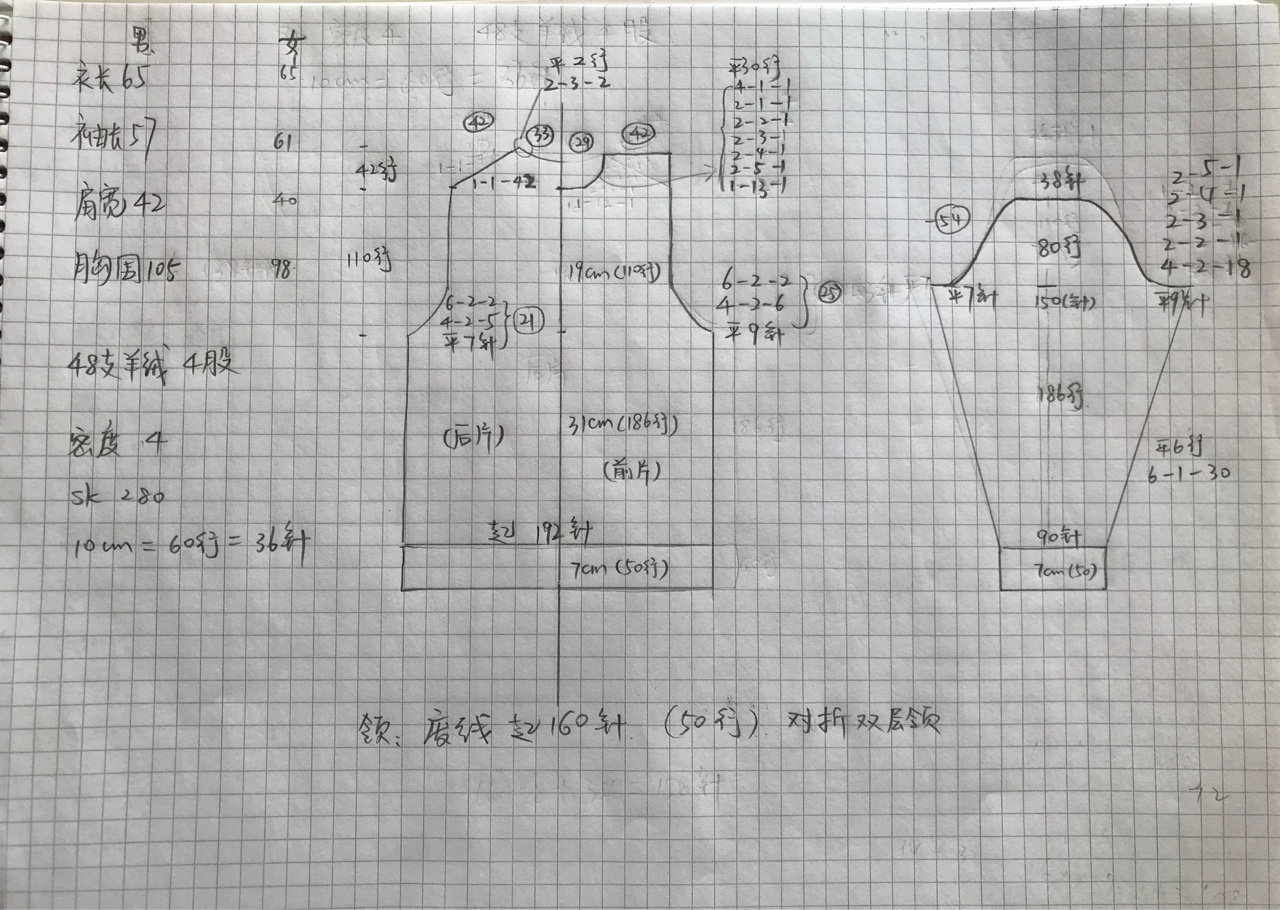 男 女
衣长65 65
袖长57 61
肩宽42 40
胸围105 98
48支羊绒 4股
密度 4
sk 280
10cm = 60行 = 36针
42行
110行
平2行
2-3-2
42
33
29
42
1-1-42
平30行
4-1-1
2-1-1
2-2-1
2-3-1
2-4-1
2-5-1
1-13-1
19cm(110行)
6-2-2
4-2-5
平7针
21
6-2-2
4-2-6
平9针
25
(后片)
31cm(186行)
(前片)
起 192针
7cm(50行)
38针
54
80行
2-5-1
2-4-1
2-3-1
2-2-1
4-2-18
平7针
150(针)
平9针
186行
平6行
6-1-30
90针
7cm(50)
领: 废线 起160针 (50行) 对折双层领